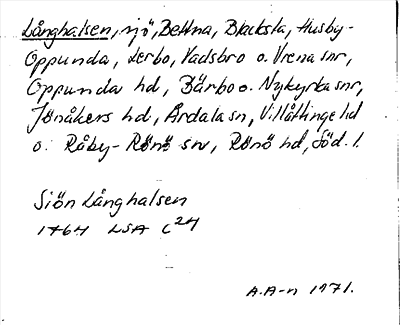 Långhalsen, sjö, Bettna, Blacksta, Husby-
Oppunda, Lerbo, Vadsbro o. Vrena snr,
Oppunda hd, Bärbo o. Nykyrka snr,
Jönåkers hd, Årdala sn, Villåttinge hd
o. Råby-Rönö sn, Rönö hd, Söd. l.
Siön Långhalsen
1764 LSA C24
A.A-n 1971.